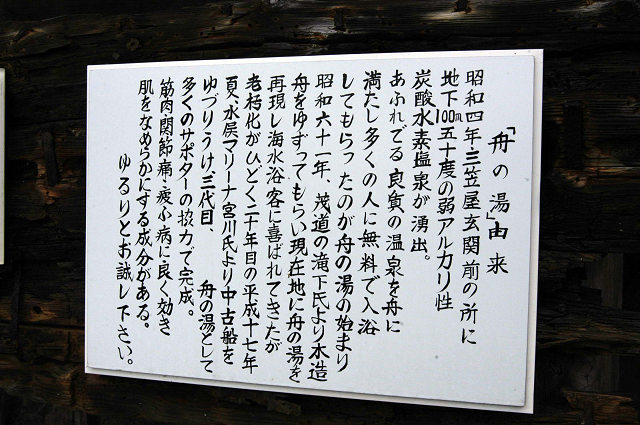 「舟の湯」由来
昭和四年三笠屋玄関前の所に
地下100m五十度の弱アルカリ性
炭酸水素塩泉が湧出。
あふれでる良質の温泉を舟に
満たし多くの人に無料で入浴
してもらったのが舟の湯の始まり
昭和六十一年、茂道の滝下氏より木造
舟をゆずってもらい現在地に舟の湯を
再現し海水浴客に喜ばれてきたが
老朽化がひどく二十年目の平成十七年
夏、水俣マリーナ宮川氏より中古船を
ゆづりうけ三代目、舟の湯として
多くのサポターの協力で完成。
筋肉・関節・痛・疲ふ病に良く効き
肌をなめらかにする成分がある。
ゆるりとお試し下さい。